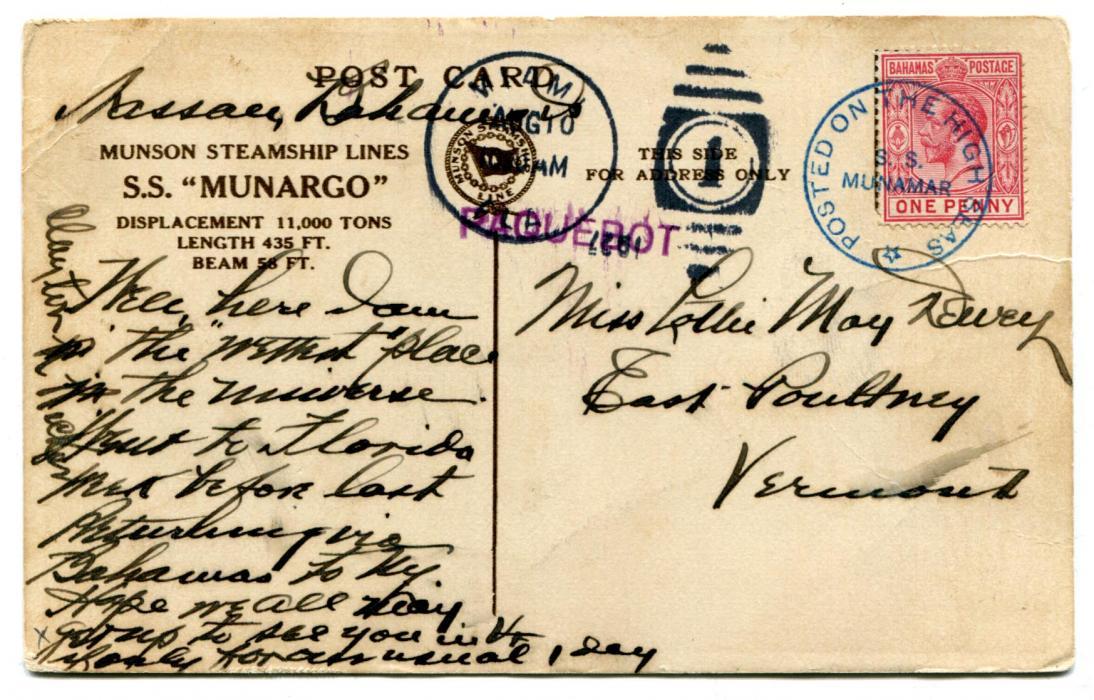 POST CARD
Nassau, Bahamas
MUNSON STEAMSHIP LINES
S.S. "MUNARGO"
DISPLACEMENT 11,000 TONS
LENGTH 435 FT.
BEAM 58 FT.
MUNSON STEAMSHIP LINE
MIAMI
AUG 10
AM
FLA
1927
1
THIS SIDE
FOR ADDRESS ONLY
PAQUEBOT
BAHAMAS POSTAGE
ONE PENNY
POSTED ON THE HIGH SEAS
S. S.
MUNAMAR
Well, here I am
in the "wettest" place
in the universe.
Went to Florida
week before last
Returning via
Bahamas to Ny.
Hope we all may
get up to see you in Vt
only for an usual 1 day
Miss Lollie May Dewey
East Poultney
Vermont